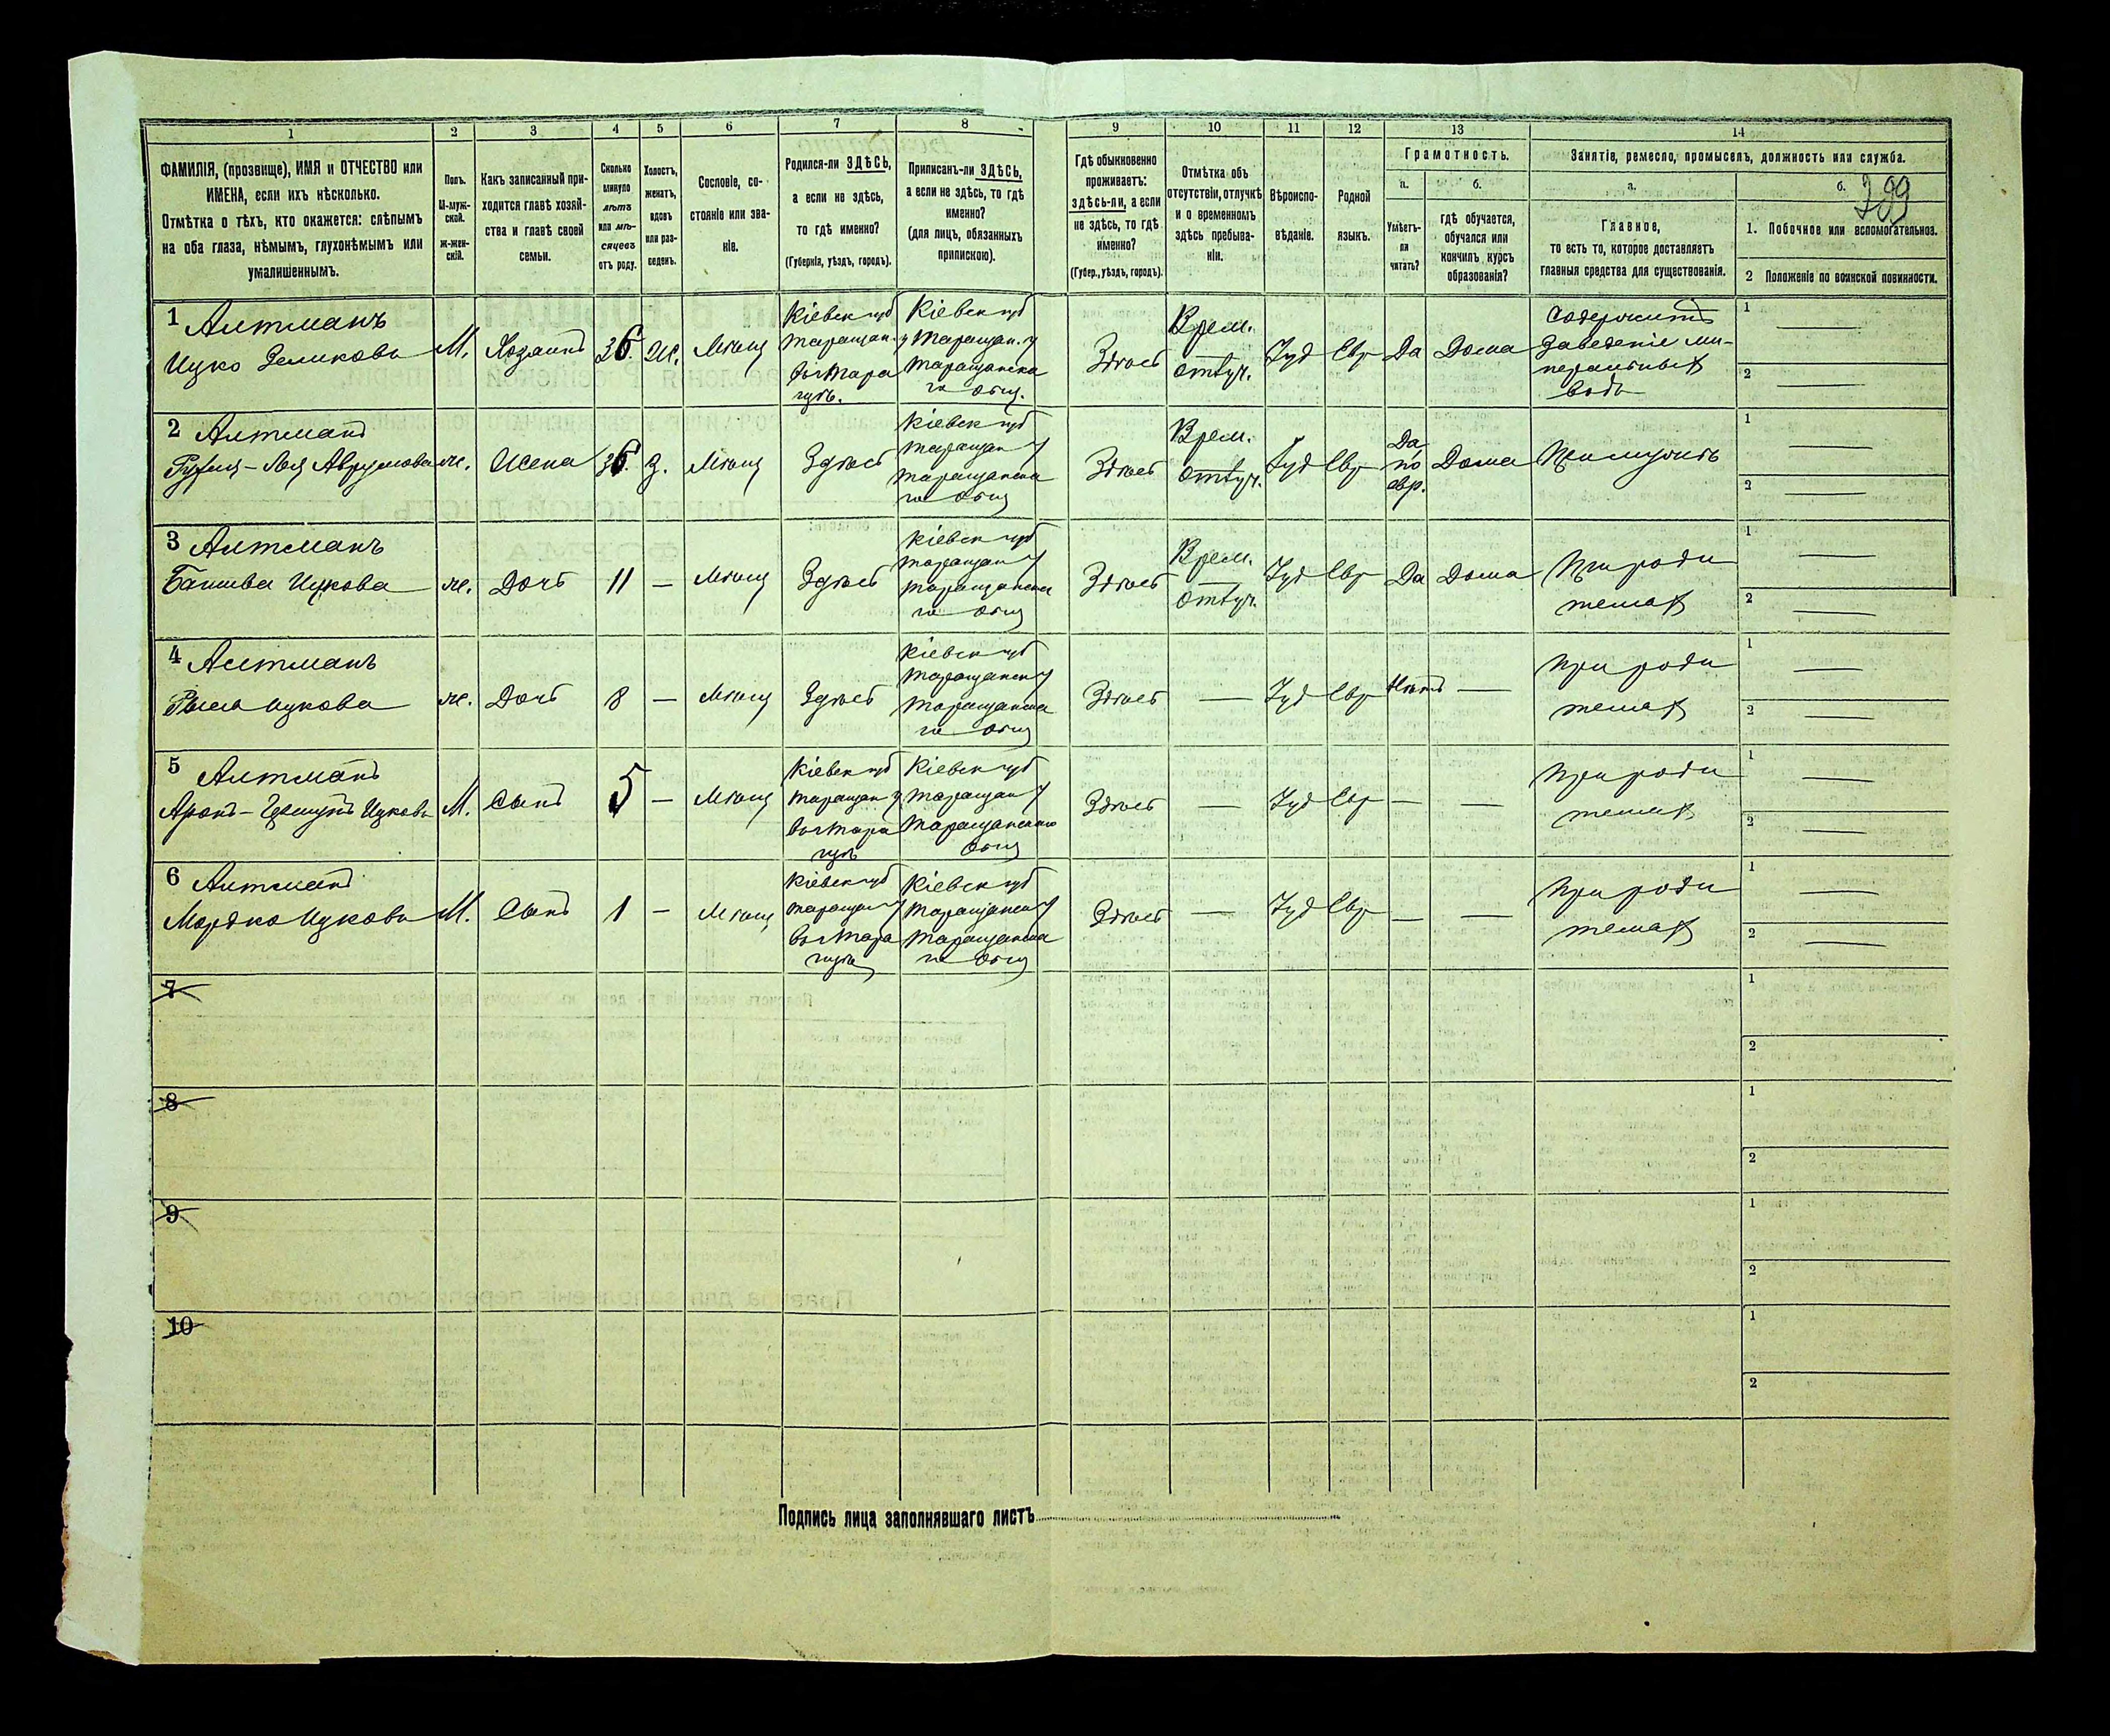 1 2 3 4 5 6 7 8 9 10 11 12 13 14
ФАМИЛІЯ, (прозвище), ИМЯ и ОТЧЕСТВО или
ИМЕНА, если ихъ нѣсколько.
Отмѣтка о тѣхъ, кто окажется: слѣпымъ
на оба глаза, нѣмымъ, глухонѣмымъ или
умалишеннымъ.
Полъ.
М-муж-
ской.
Ж-жен-
скій.
Какъ записанный при-
ходится главѣ хозяй-
ства и главѣ своей
семьи.
Сколько
минуло
лѣтъ
или мѣ-
сяцевъ
отъ роду.
Холостъ,
женатъ,
вдовъ
или раз-
веденъ.
Сословіе, со-
стояніе или зва-
ніе.
Родился-ли ЗДѢСЬ,
а если не здѣсь,
то гдѣ именно?
(Губернія, уѣздъ, городъ).
Приписанъ-ли ЗДѢСЬ,
а если не здѣсь, то гдѣ
именно?
(для лицъ, обязанныхъ
припискою).
Гдѣ обыкновенно
проживаетъ:
здѣсь-ли, а если
не здѣсь, то гдѣ
именно?
(Губер., уѣздъ, городъ).
Отмѣтка объ
отсутствіи, отлучкѣ
и о временномъ
здѣсь пребыва-
ніи.
Вѣроиспо-
вѣданіе.
Родной
языкъ.
Грамотность.
а.
Умѣетъ-
ли
читать?
б.
гдѣ обучается,
обучался или
кончилъ курсъ
образованія?
Занятіе, ремесло, промыселъ, должность или служба.
а.
Главное,
то есть то, которое доставляетъ
главныя средства для существованія.
б.
1. Побочное или вспомогательное.
2 Положеніе по воинской повинности.
1 Алтманъ
Ицко Зеликовъ
М.
Хозяинъ
36.
Же.
Мѣщ
Кіевск губ
Таращан. у
Кіевск губ
Таращан. у
Таращанска
го общ.
Здѣсь
Врем.
отлуч.
Іуд
Евр
Да
Дома
Содержитъ
заведеніе ми-
неральныхъ
водъ
1
2
2 Алтманъ
Аврумова
ж.
Жена
36.
З.
Мѣщ
Здѣсь
Кіевск губ
Таращан у
Таращанска
го общ
Здѣсь
Врем.
отлуч.
Іуд
Евр
Да
по
евр.
Дома
При мужѣ
1
2
3 Алтманъ
Ицкова
ж.
Дочь
11
—
Мѣщ
Здѣсь
Кіевск губ
Таращан у
Таращанска
го общ
Здѣсь
Врем.
отлуч.
Іуд
Евр
Да
Дома
При роди
теляхъ
1
2
4 Алтманъ
Ицкова
ж.
Дочь
8
—
Мѣщ
Здѣсь
Кіевск губ
Таращанск у
Таращанска
го общ
Здѣсь
—
Іуд
Евр
Нѣтъ
—
При роди
теляхъ
1
2
5 Алтманъ
Ицковъ
М.
Сынъ
5
—
Мѣщ
Кіевск губ
Таращан у
Кіевск губ
Таращан у
Таращанского
общ
Здѣсь
—
Іуд
Евр
—
—
При роди
теляхъ
1
2
6 Алтманъ
Мордко Ицковъ
М.
Сынъ
1
—
Мѣщ
Кіевск губ
Таращан у
Кіевск губ
Таращанск у
Таращанска
го общ
Здѣсь
—
Іуд
Евр
—
—
При роди
теляхъ
1
2
7
1
2
8
1
2
9
1
2
10
1
2
Подпись лица заполнявшаго листъ